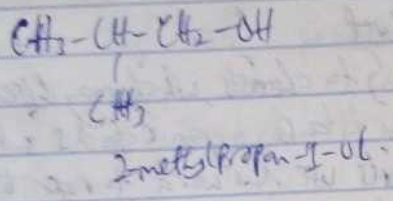 CH₃-CH-CH₂-OH
|
CH₃
2-methylpropan-1-ol.